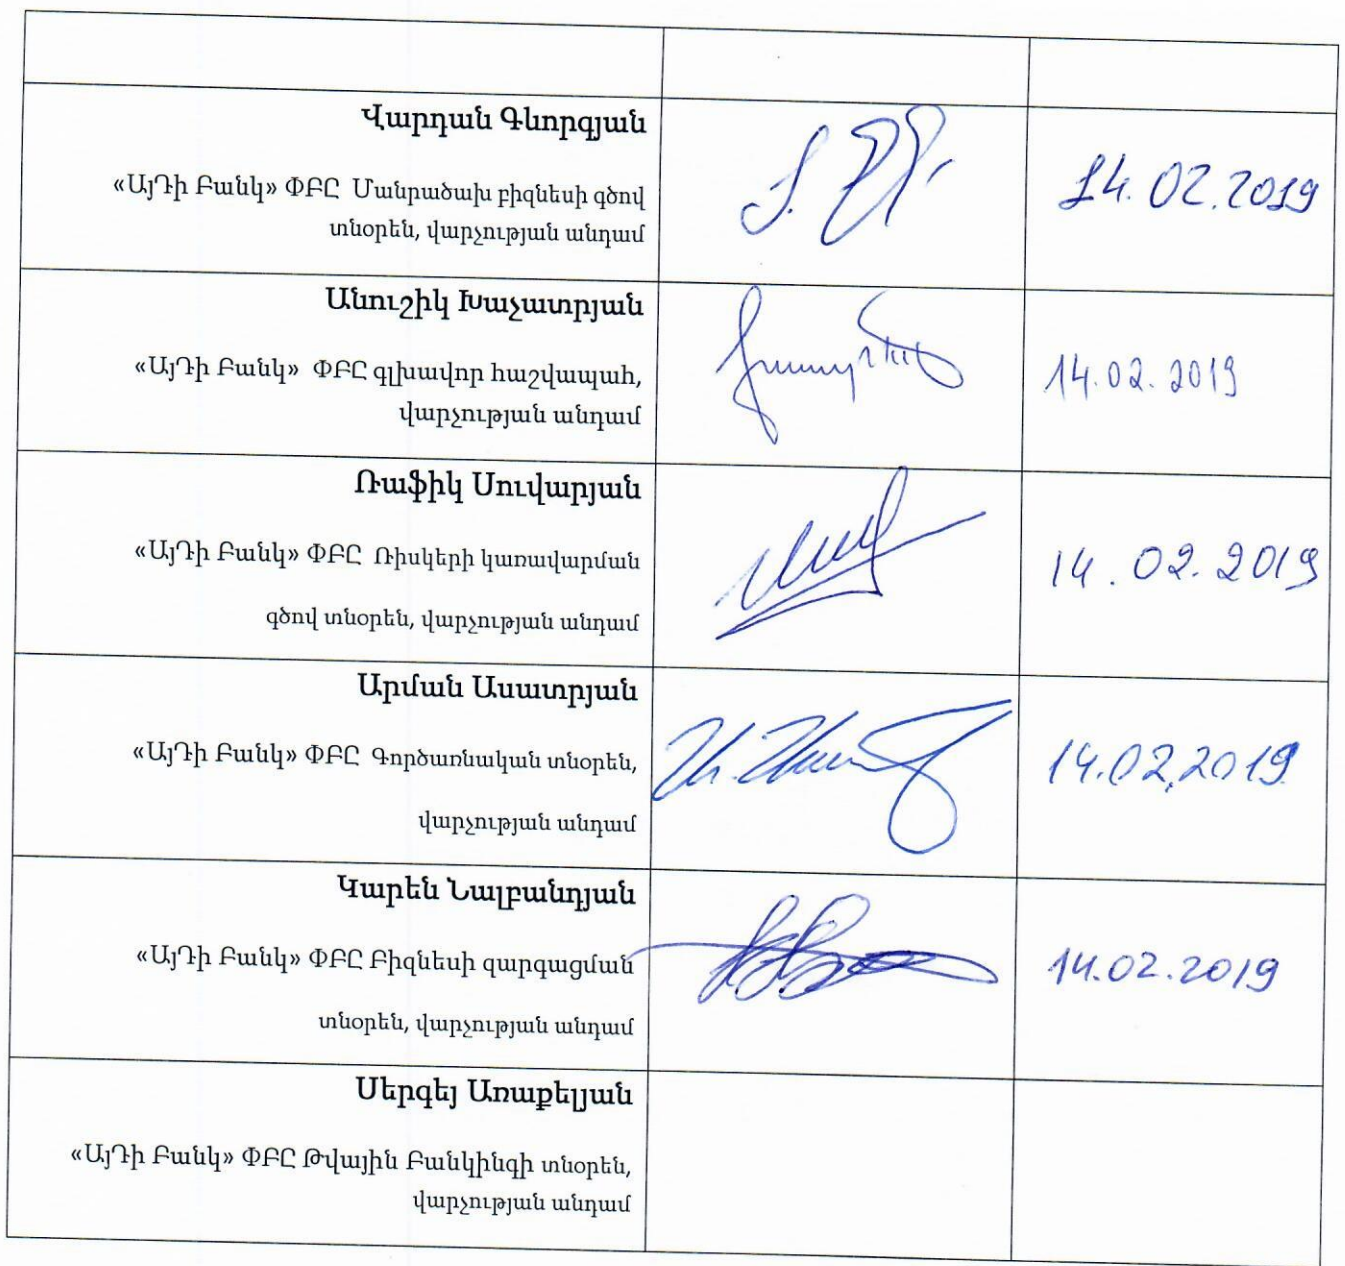 Վարդան Գևորգյան
«ԱյԴի Բանկ» ՓԲԸ Մանրածախ բիզնեսի գծով
տնօրեն, վարչության անդամ
14.02.2019
Անուշիկ Խաչատրյան
«ԱյԴի Բանկ» ՓԲԸ գլխավոր հաշվապահ,
վարչության անդամ
14.02.2019
Ռաֆիկ Սուվարյան
«ԱյԴի Բանկ» ՓԲԸ Ռիսկերի կառավարման
գծով տնօրեն, վարչության անդամ
14.02.2019
Արման Ասատրյան
«ԱյԴի Բանկ» ՓԲԸ Գործառնական տնօրեն,
վարչության անդամ
14.02.2019
Կարեն Նալբանդյան
«ԱյԴի Բանկ» ՓԲԸ Բիզնեսի զարգացման
տնօրեն, վարչության անդամ
14.02.2019
Սերգեյ Առաքելյան
«ԱյԴի Բանկ» ՓԲԸ Թվային Բանկինգի տնօրեն,
վարչության անդամ